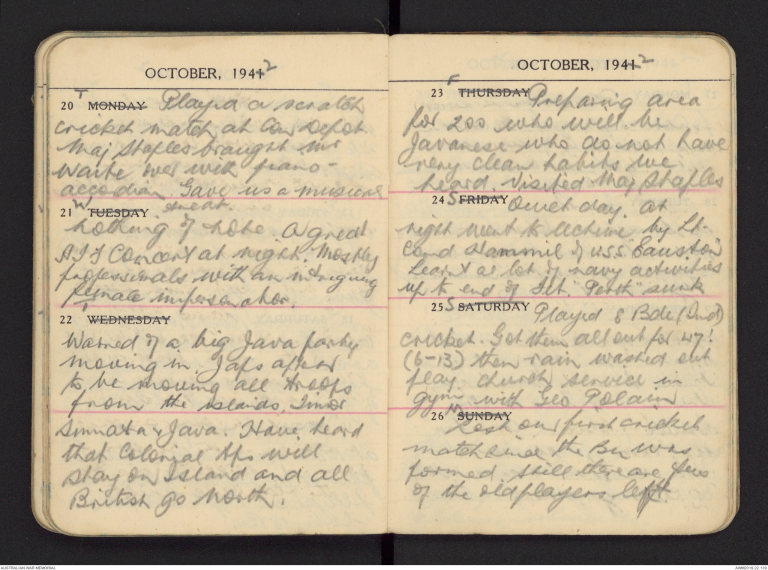 OCTOBER, 1941 2
20 T MONDAY Played a scratch
cricket match at Con Depot
Maj Staples brought
Waite over with piano-
accordian. Gave us a musical
treat.
21 W TUESDAY
Nothing of note a great
AIF Concert at night. Mostly
professionals with an intriguing
female impersonator.
22 T WEDNESDAY
Warned of a big Java party
moving in. Japs appear
to be moving all troops
from the islands, Timor
Sumatra & Java. Have heard
that Colonial tps will
stay on Island and all
British go North.
OCTOBER, 1941 2
23 F THURSDAY Preparing area
for 200 who will be
Javanese who do not have
very clean habits we
heard. Visited Maj Staples
24 S FRIDAY Quiet day. at
night went to lecture by Lt-
Comd Hammil of USS Eauston
Learnt a lot of navy activities
up to end of Feb. "Perth" sunk
25 S SATURDAY Played 8 Bde (Ind)
cricket. Got them all out for 47!
(6-13) then rain washed out
play. church service in
gym with Geo Polain
26 M SUNDAY
Lost our first cricket
match since the Bn was
formed still there are few
of the old players left
AUSTRALIAN WAR MEMORIAL